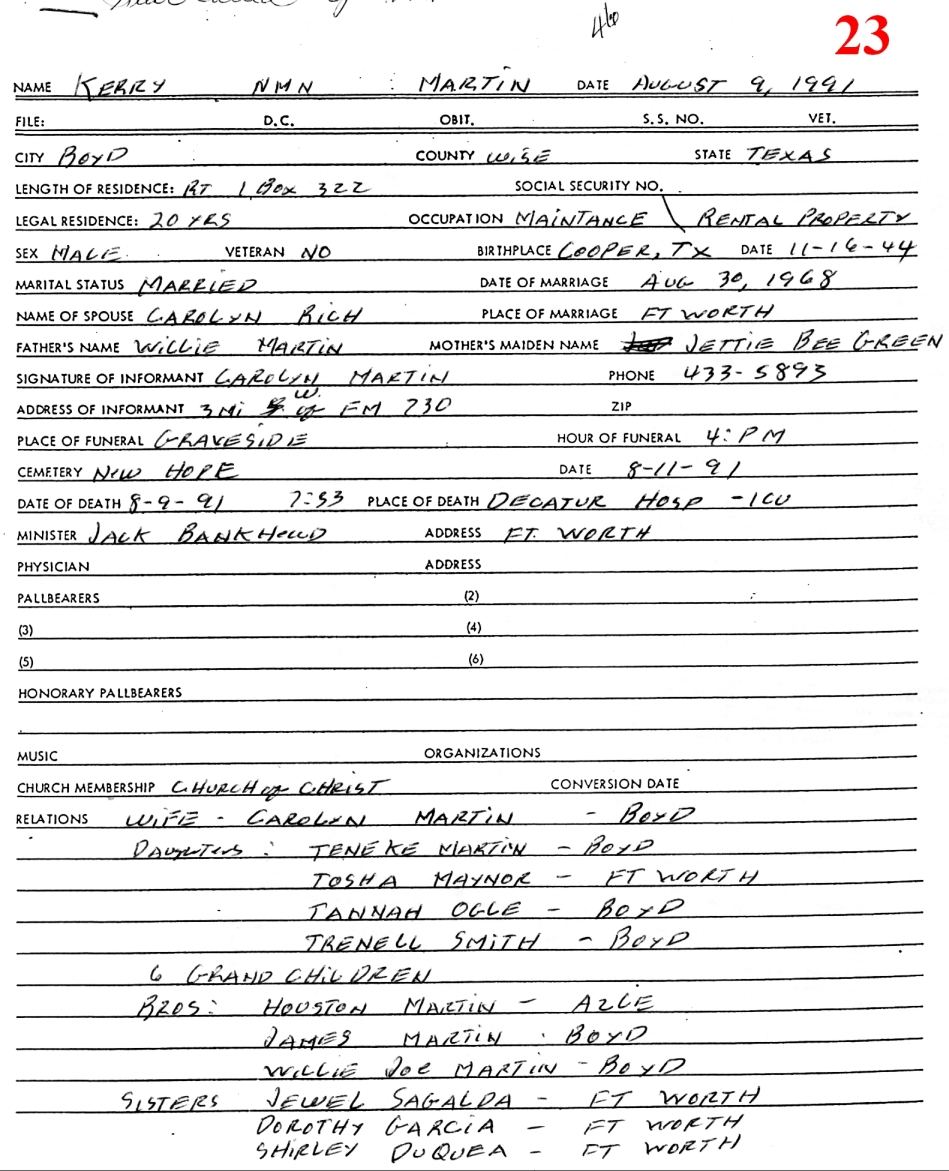 46
23
NAME KERRY NMN MARTIN DATE AUGUST 9, 1991
FILE: D.C. OBIT. S.S. NO. VET.
CITY BOYD COUNTY WISE STATE TEXAS
LENGTH OF RESIDENCE: RT 1 BOX 322 SOCIAL SECURITY NO.
LEGAL RESIDENCE: 20 YRS OCCUPATION MAINTANCE \ RENTAL PROPERTY
SEX MALE VETERAN NO BIRTHPLACE COOPER, TX DATE 11-16-44
MARITAL STATUS MARRIED DATE OF MARRIAGE AUG 30, 1968
NAME OF SPOUSE CAROLYN RICH PLACE OF MARRIAGE FT WORTH
FATHER'S NAME WILLIE MARTIN MOTHER'S MAIDEN NAME JETTIE BEE GREEN
SIGNATURE OF INFORMANT CAROLYN MARTIN PHONE 433-5893
ADDRESS OF INFORMANT 3 Mi W. of FM 730 ZIP
PLACE OF FUNERAL GRAVESIDE HOUR OF FUNERAL 4: PM
CEMETERY NEW HOPE DATE 8-11-91
DATE OF DEATH 8-9-91 7:53 PLACE OF DEATH DECATUR HOSP - ICU
MINISTER JACK ADDRESS FT. WORTH
PHYSICIAN ADDRESS
PALLBEARERS (2)
(3) (4)
(5) (6)
HONORARY PALLBEARERS
MUSIC ORGANIZATIONS
CHURCH MEMBERSHIP CHURCH of CHRIST CONVERSION DATE
RELATIONS WIFE - CAROLYN MARTIN - BOYD
DAUGHTERS: TENEKE MARTIN - BOYD
TOSHA MAYNOR - FT WORTH
TANNAH OGLE - BOYD
TRENELL SMITH - BOYD
6 GRAND CHILDREN
BROS: HOUSTON MARTIN - AZLE
JAMES MARTIN - BOYD
WILLIE JOE MARTIN - BOYD
SISTERS JEWEL SAGALDA - FT WORTH
DOROTHY GARCIA - FT WORTH
SHIRLEY DUQUEA - FT WORTH